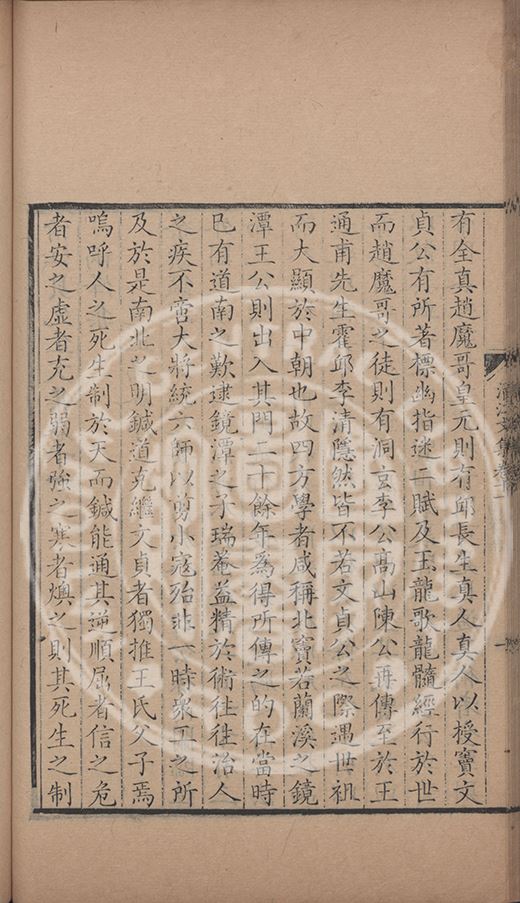 有全真趙魔哥皇元則有邱長生真人真人以授竇文
貞公有所著標幽指迷二賦及玉龍歌龍髓經行於世
而趙魔哥之徒則有洞玄李公高山陳公再傳至於王
通甫先生霍邱李清隱然皆不若文貞公之際遇世祖
而大顯於中朝也故四方學者咸稱北竇若蘭溪之鏡
潭王公則出入其門二十餘年爲得所傳之的在當時
已有道南之歎逮鏡潭之子瑞菴益精於術往往治人
之疾不啻大將統六師以剪小寇殆非一時眾工之所
及於是南北之明鍼道克繼文貞者獨推王氏父子焉
嗚呼人之死生制於天而鍼能通其逆順屈者信之危
者安之虛者充之弱者強之寒者燠之則其死生之制